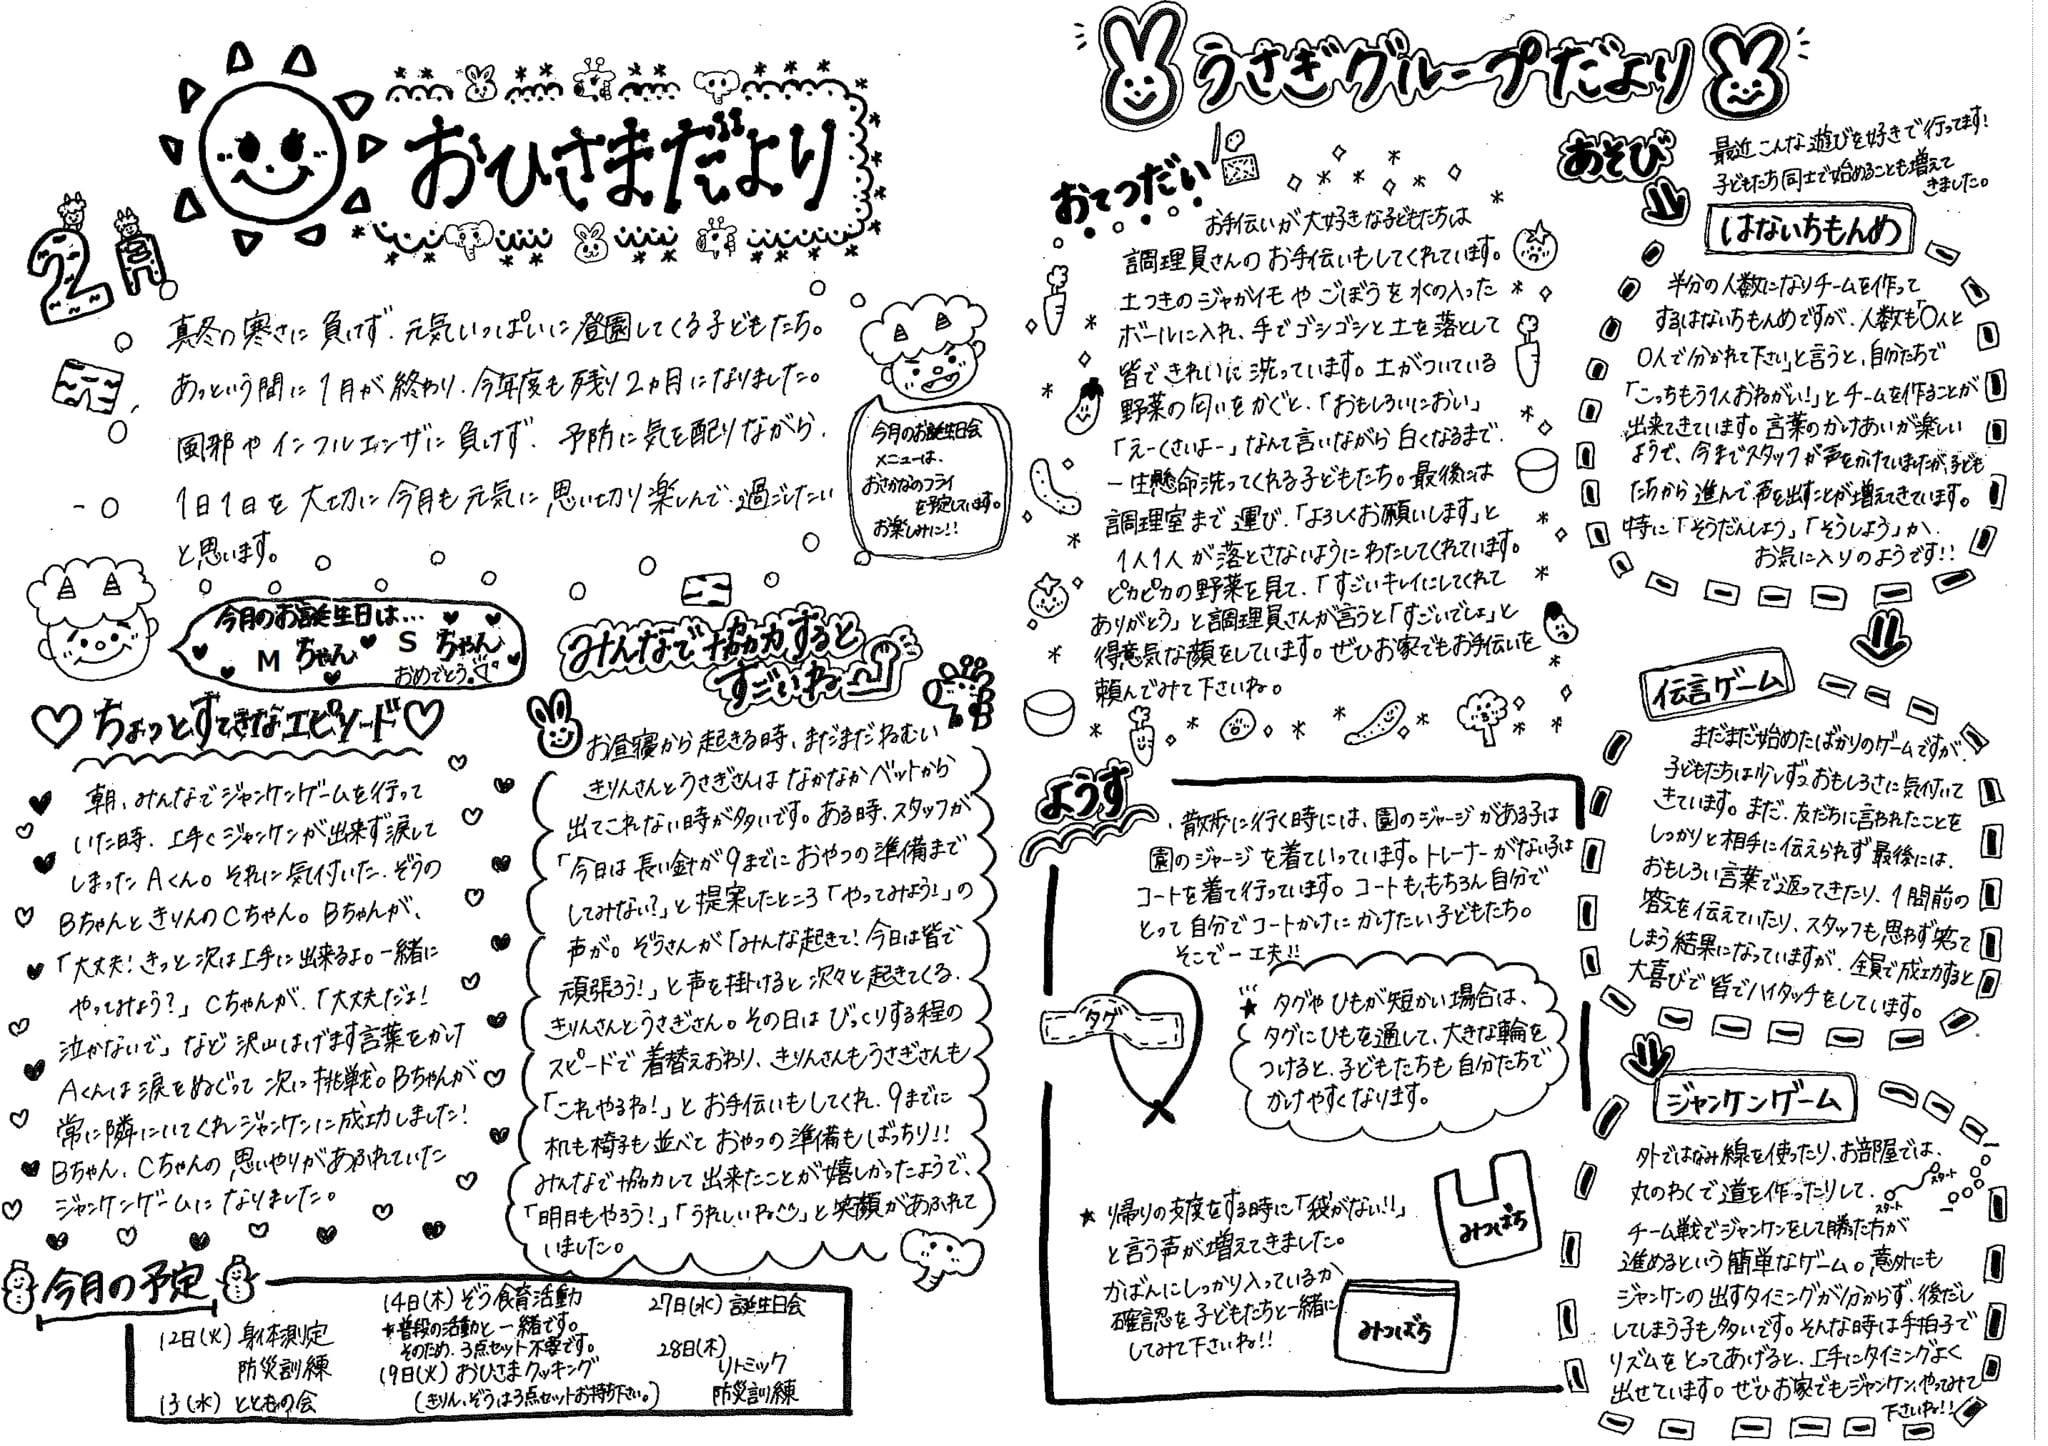 おひさまだより
2月
真冬の寒さに負けず、元気いっぱいに登園してくる子どもたち。
あっという間に1月が終わり、今年度も残り2ヵ月になりました。
風邪やインフルエンザに負けず、予防に気を配りながら、
1日1日を大切に今月も元気に思い切り楽しんで過ごしたい
と思います。
今月のお誕生日会
メニューは、
おさかなのフライ
を予定しています。
お楽しみに!!
今月のお誕生日は…
Mちゃん Sちゃん
おめでとう。
ちょっとすてきなエピソード
朝、みんなでジャンケンゲームを行って
いた時、上手くジャンケンが出来ず涙して
しまったAくん。それに気付いた、ぞうの
BちゃんときりんのCちゃん。Bちゃんが、
「大丈夫!きっと次は上手に出来るよ。一緒に
やってみよう?」Cちゃんが、「大丈夫だよ!
泣かないで」など沢山はげます言葉をかけ
Aくんは涙をぬぐって次に挑戦。Bちゃんが
常に隣にいてくれジャンケンに成功しました!
Bちゃん、Cちゃんの思いやりがあふれていた
ジャンケンゲームになりました。
みんなで協力すると
すごいね
お昼寝から起きる時、まだまだねむい
きりんさんとうさぎさんはなかなかベットから
出てこれない時が多いです。ある時、スタッフが
「今日は長い針が9までにおやつの準備まで
してみない?」と提案したところ「やってみよう!」の
声が。ぞうさんが「みんな起きて!今日は皆で
頑張ろう!」と声を掛けると次々と起きてくる、
きりんさんとうさぎさん。その日はびっくりする程の
スピードで着替えおわり、きりんさんもうさぎさんも
「これやるね!」とお手伝いもしてくれ、9までに
机も椅子も並べておやつの準備もばっちり!!
みんなで協力して出来たことが嬉しかったようで、
「明日もやろう!」「うれしいね」と笑顔があふれて
いました。
今月の予定
12日(火)身体測定
防災訓練
13(水)とともの会
14日(木)ぞう食育活動
★普段の活動と一緒です。
そのため、3点セット不要です。
19日(火)おひさまクッキング
(きりん、ぞうは3点セットお持ち下さい。)
27日(水)誕生日会
28日(木)
リトミック
防災訓練
うさぎグループだより
おてつだい
お手伝いが大好きな子どもたちは
調理員さんのお手伝いもしてくれています。
土つきのジャガイモやごぼうを水の入った
ボールに入れ、手でゴシゴシと土を落として
皆できれいに洗っています。土がついている
野菜の匂いをかぐと、「おもしろいにおい」
「えーくさいよー」なんて言いながら白くなるまで、
一生懸命洗ってくれる子どもたち。最後には
調理室まで運び、「よろしくお願いします」と
1人1人が落とさないようにわたしてくれています。
ピカピカの野菜を見て、「すごいキレイにしてくれて
ありがとう」と調理員さんが言うと「すごいでしょ」と
得意気な顔をしています。ぜひお家でもお手伝いを
頼んでみて下さいね。
ようす
・散歩に行く時には、園のジャージがある子は
園のジャージを着ていっています。トレーナーがない子は
コートを着て行っています。コートも、もちろん自分で
とって自分でコートかけにかけたい子どもたち。
そこで一工夫!!
タグ
★タグやひもが短かい場合は、
タグにひもを通して、大きな輪を
つけると、子どもたちも自分たちで
かけやすくなります。
★帰りの支度をする時に「袋がない!!」
と言う声が増えてきました。
かばんにしっかり入っているか
確認を子どもたちと一緒に
してみて下さいね!!
みつばち
みつばち
あそび
最近こんな遊びを好きで行ってます!
子どもたち同士で始めることも増えて
きました。
はないちもんめ
半分の人数になりチームを作って
するはないちもんめですが、人数も「〇人と
〇人で分かれて下さい」と言うと、自分たちで
「こっちもう1人おねがい!」とチームを作ることが
出来てきています。言葉のかけあいが楽しい
ようで、今までスタッフが声をかけていましたが、子ども
たちから進んで声を出すことが増えてきています。
特に「そうだんしよう」「そうしよう」が、
お気に入りのようです!!
伝言ゲーム
まだまだ始めたばかりのゲームですが、
子どもたちは少しずつおもしろさに気付いて
きています。まだ、友だちに言われたことを
しっかりと相手に伝えられず最後には、
おもしろい言葉で返ってきたり、1問前の
答えを伝えていたり、スタッフも思わず笑って
しまう結果になっていますが、全員で成功すると
大喜びで皆でハイタッチをしています。
ジャンケンゲーム
外ではなみ線を使ったり、お部屋では、
丸のわくで道を作ったりして、
スタート
スタート
チーム戦でジャンケンをして勝った方が
進めるという簡単なゲーム。意外にも
ジャンケンの出すタイミングが分からず、後だし
してしまう子も多いです。そんな時は手拍子で
リズムをとってあげると、上手にタイミングよく
出せています。ぜひお家でもジャンケン、やってみて
下さいね!!